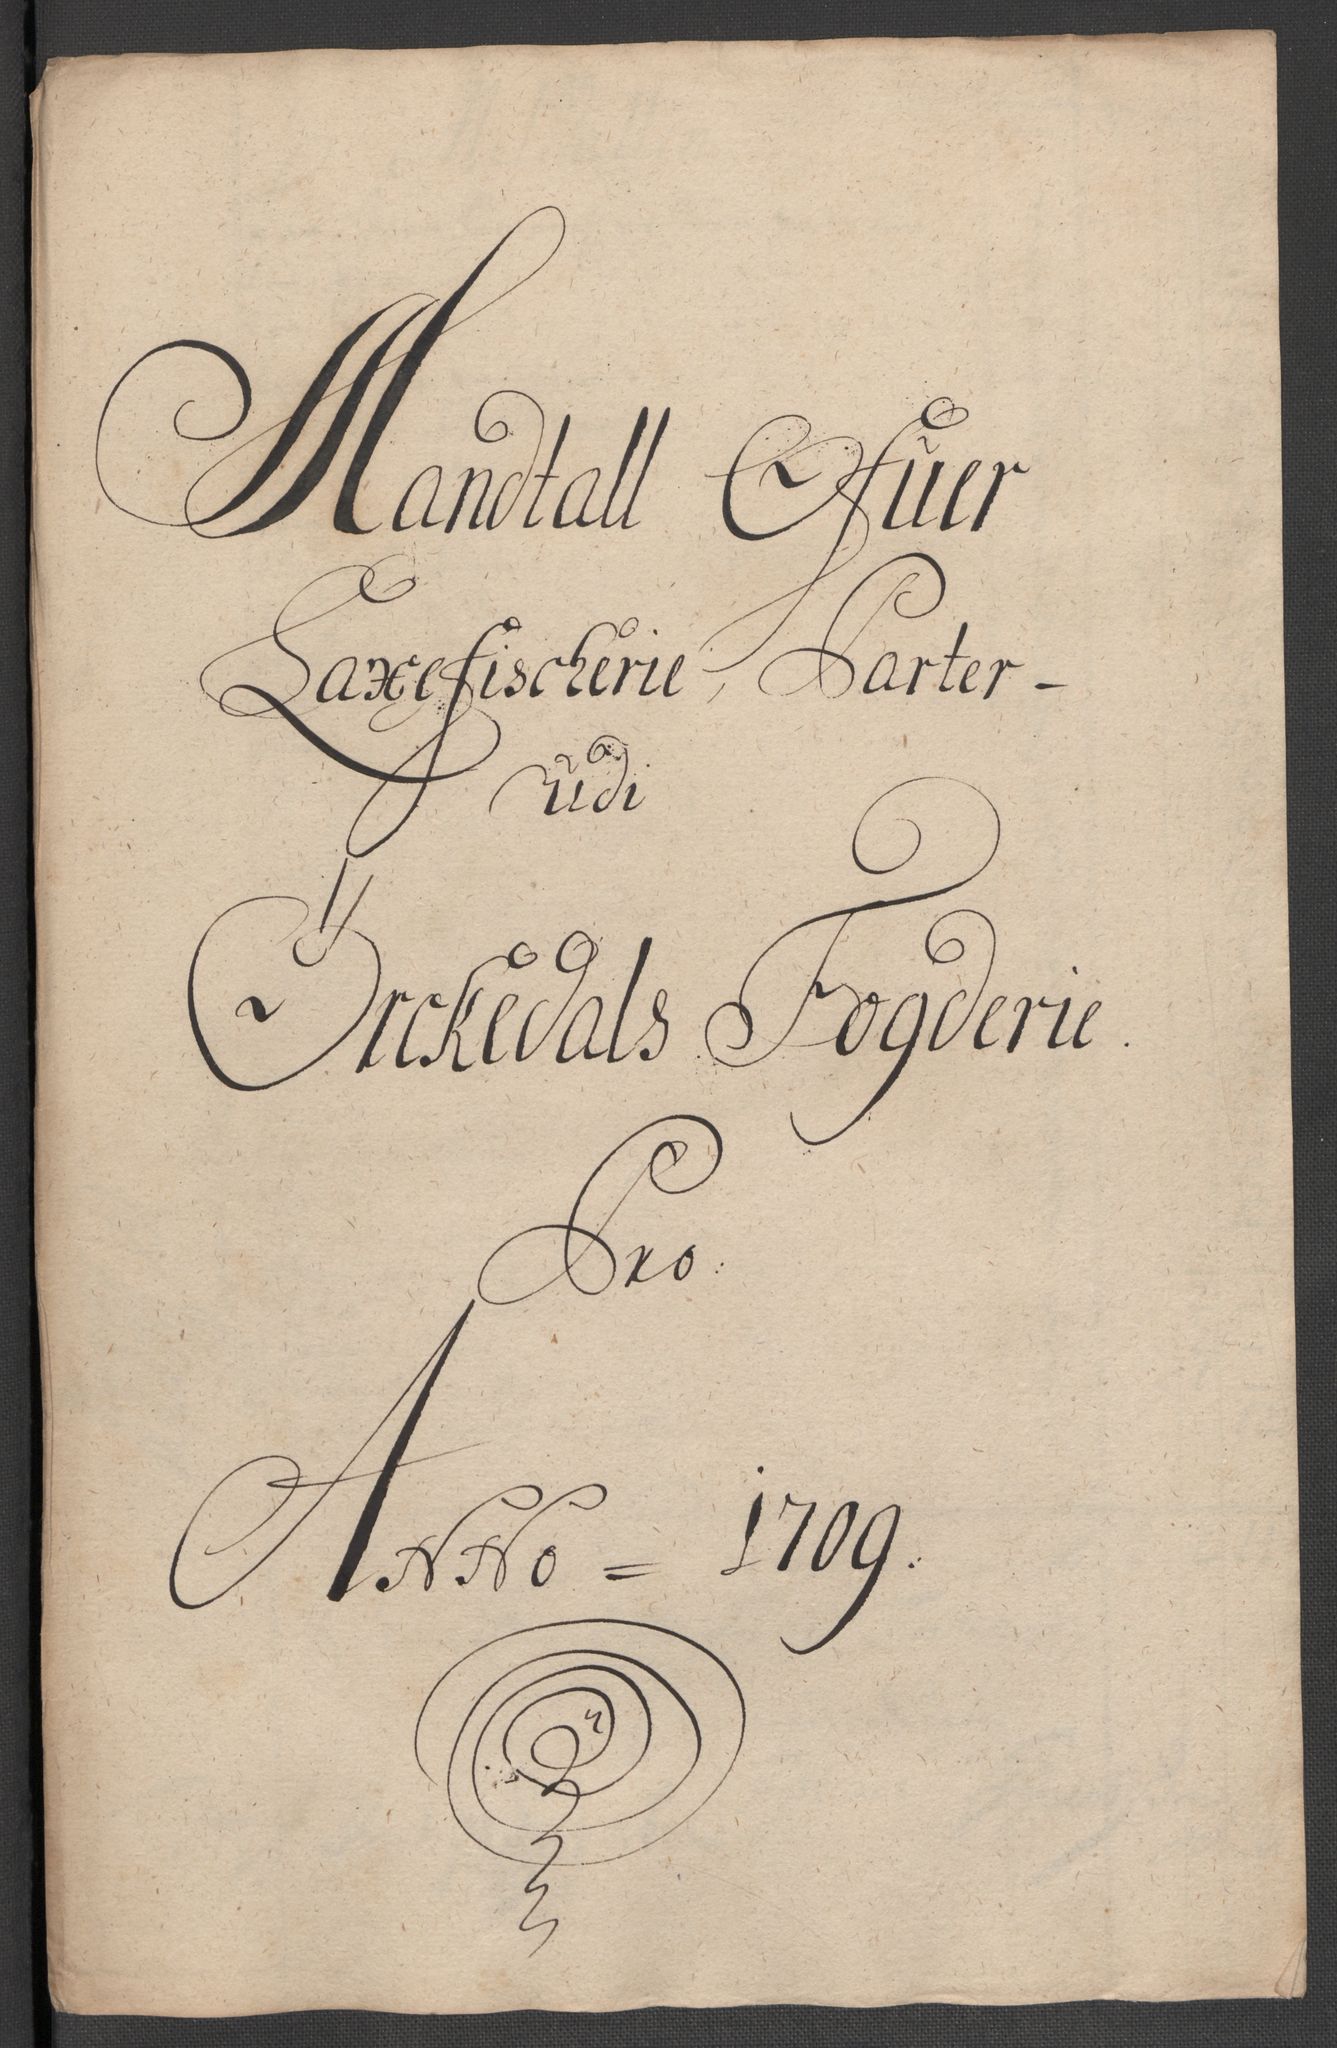 Mandtall Ofuer
Laxefischerie, Parter-
udi
Örckedals Fogderie.
Pro:
ANNo = 1709.